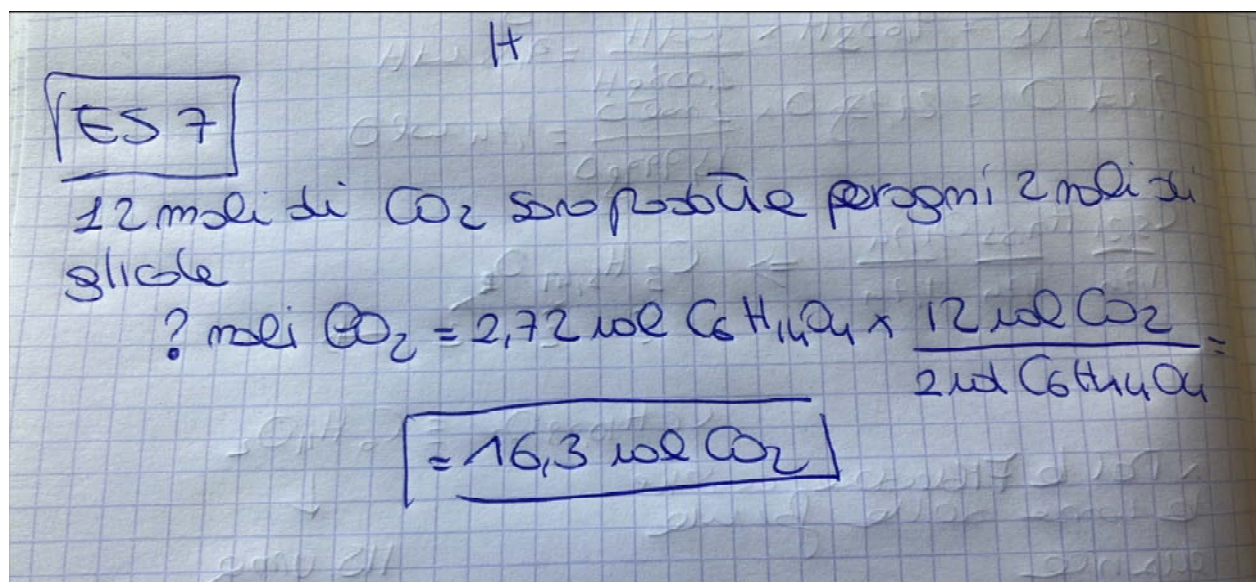 H
ES 7
12 moli di CO2 sono prodotte per ogni 2 moli di
glicole
? moli CO2 = 2,72 mol C6H14O4 × 12 mol CO2 / 2 mol C6H14O4 =
= 16,3 mol CO2